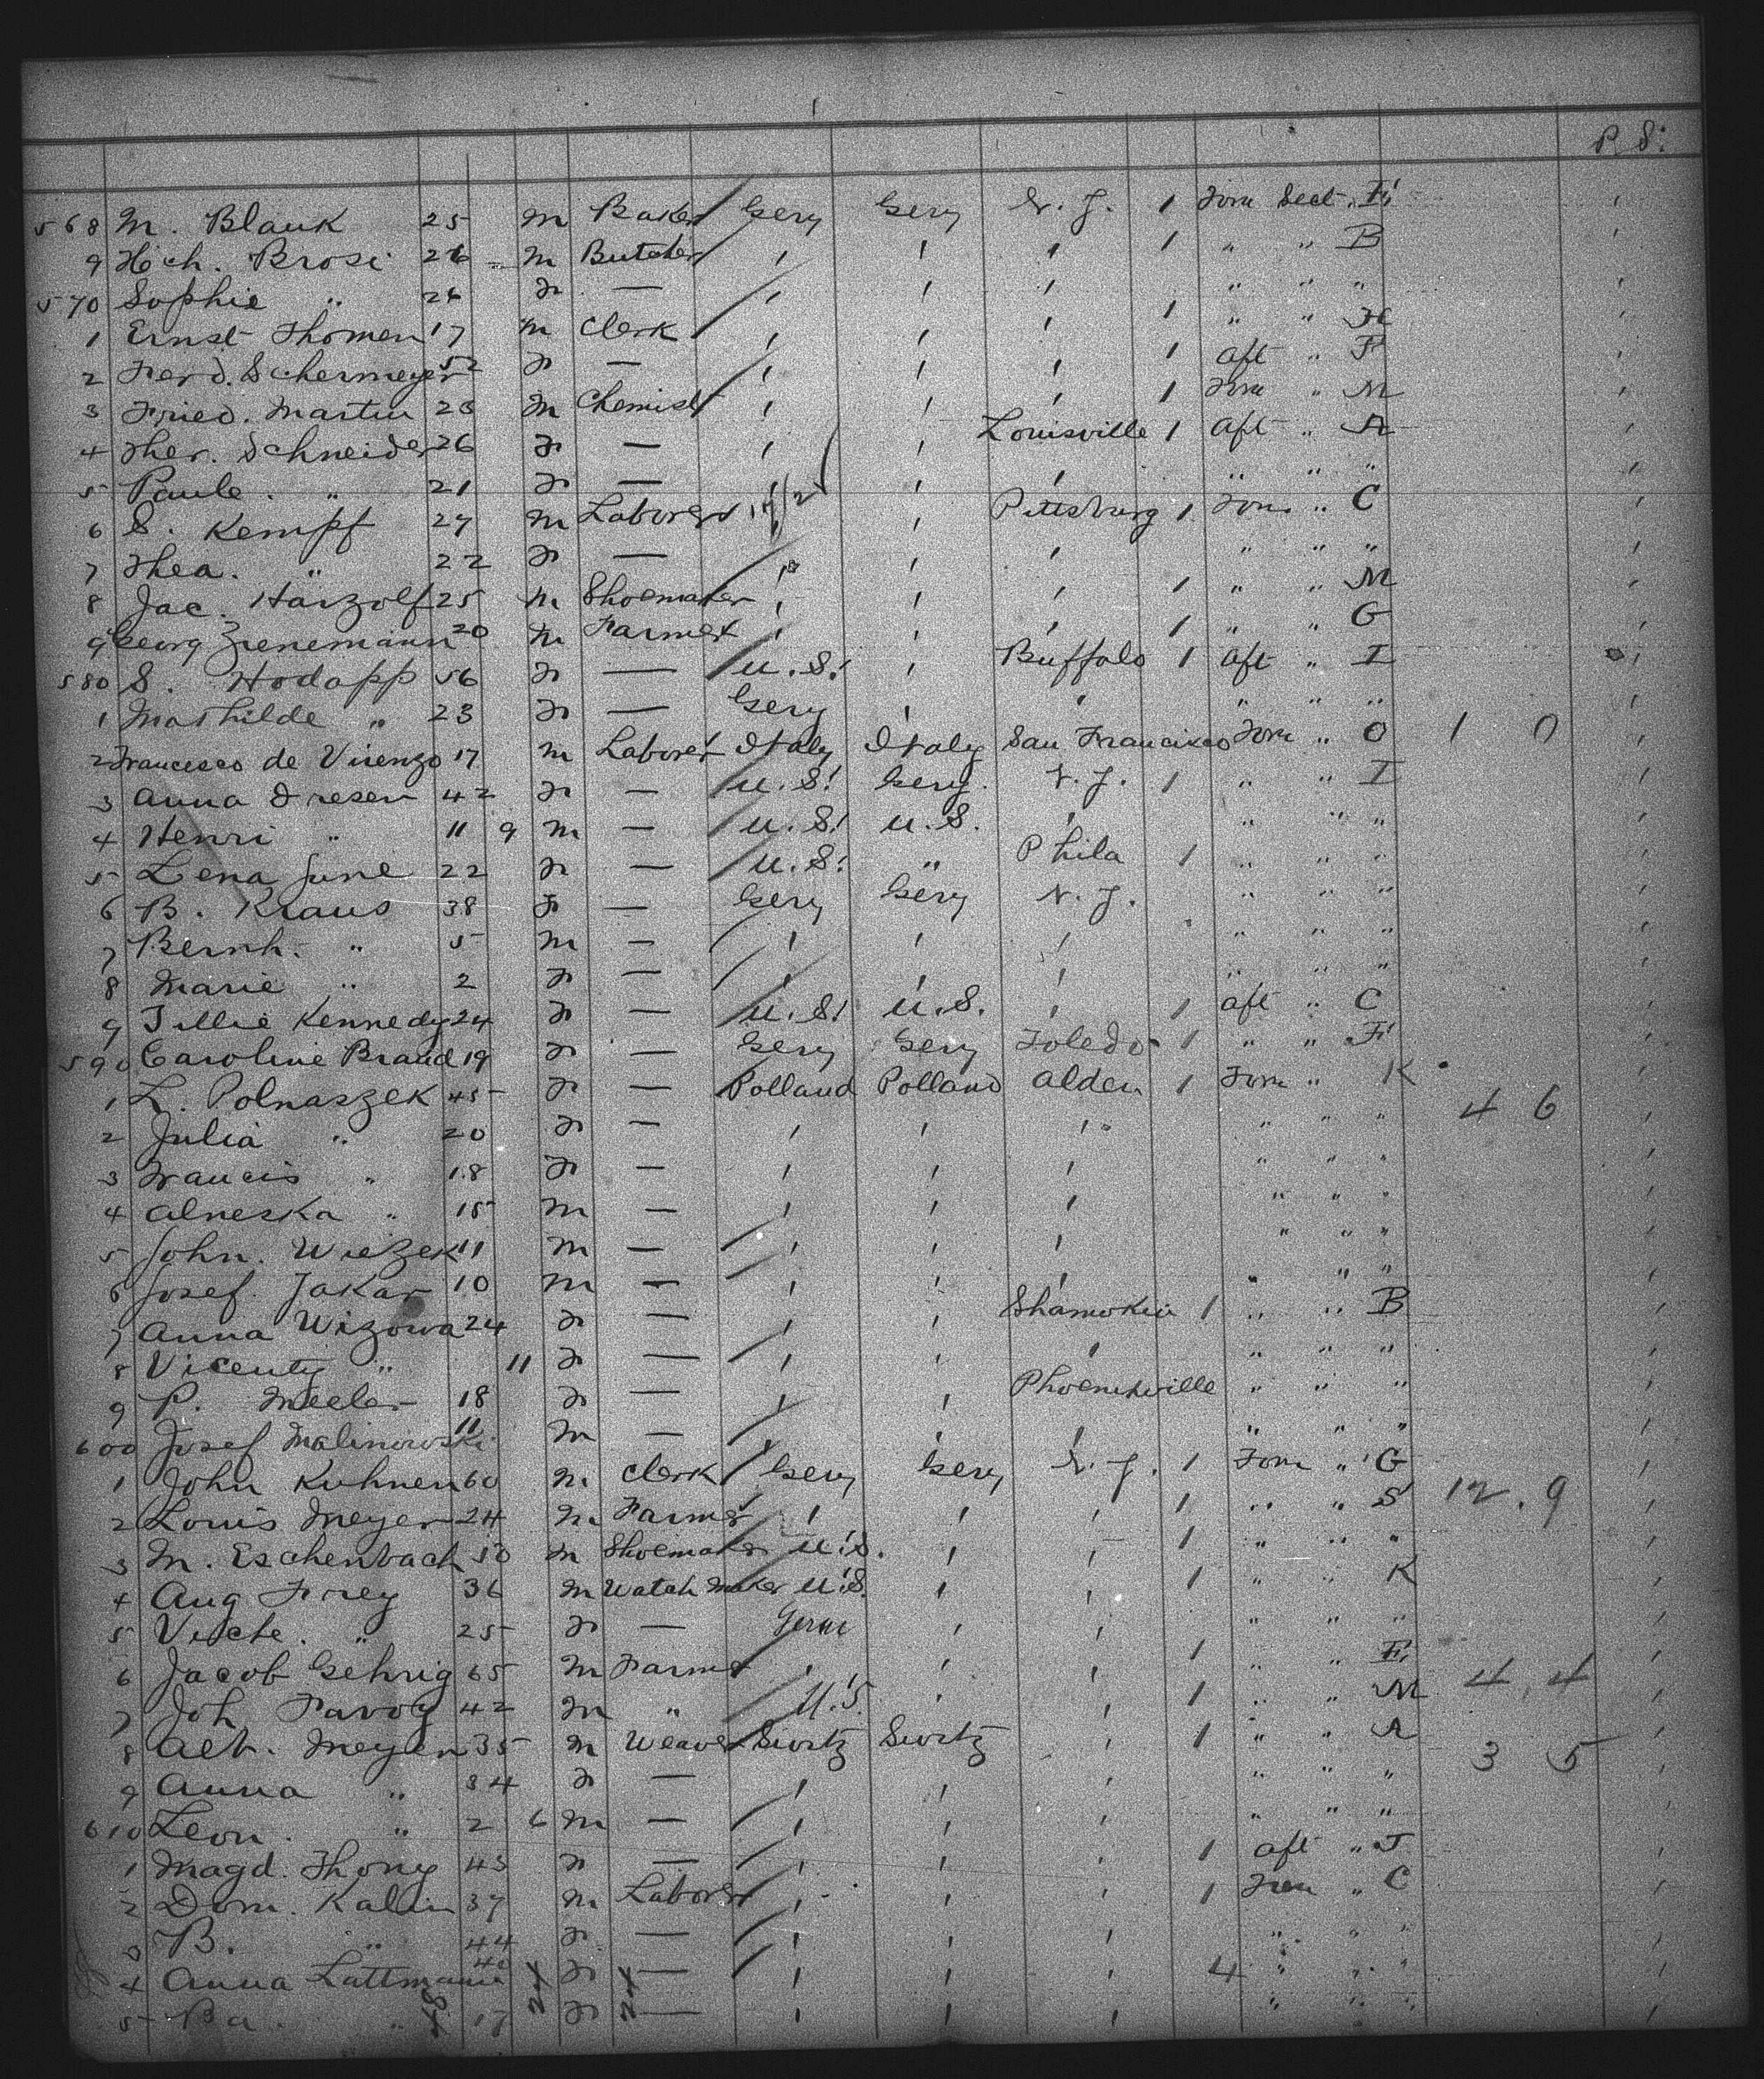 P. S.
568 M. Blank 25 M Baker Gery Gery N. Y. 1 Forw Sect. E
9 Hch. Brosi 26 M Butcher " " " 1 " " B
570 Sophie " 26 F — " " " " " "
1 Ernst Thomen 17 M Clerk " " " 1 " " H
2 Ferd. Schermeyer 52 F — " " " 1 aft " F
3 Fried. Martin 28 M Chemist " " " 1 Forw " M
4 Ther. Schneider 26 F — " " Louisville 1 aft " A
5 Paule. " 21 F — " " " " " "
6 S. Kempf 27 M Laborer " " Pittsburg 1 Forw " C
7 Thea. " 22 F — " " " " " "
8 Jac. Harzolf 25 M Shoemaker " " " 1 " " M
9 Georg Zienemann 20 M Farmer " " " 1 " " G
580 S. Hodapp 56 F — U.S. " Buffalo 1 aft " I
1 Mathilde " 23 F — Gery " " " " "
2 Francesco de Virenzo 17 M Laborer Italy Italy San Francisco Forw " O 1 0
3 Anna Dresen 42 F — U.S. Gery. N. Y. 1 " " I
4 Henri " 11 9 M — U.S. U.S. " " " "
5 Lena June 22 F — U.S. " Phila 1 " " "
6 B. Kraus 38 F — Gery Gery N. Y. " " "
7 Bernh. " 5 M — " " " " " "
8 Marie " 2 F — " " " " " "
9 Tillie Kennedy 24 F — U.S. U.S. " 1 aft " C
590 Caroline Braud 19 F — Gery Gery Toledo 1 " " F
1 L. Polnaszek 45 F — Polland Polland Alden 1 Forw " K
2 Julia " 20 F — " " " " " " 4 6
3 Francis " 18 F — " " " " " "
4 Alneska " 15 M — " " " " " "
5 John. Wiezek 11 M — " " " " " "
6 Josef. Jakar 10 M — " " " " " "
7 Anna Wizowa 24 F — " " Shamokin 1 " " B
8 Vicenty " 11 F — " " " " " "
9 P. Meeler 18 F — " " Phoenixville " " "
600 Josef Malinowski 11 M — " " " " " "
1 John Kuhnen 60 M Clerk Gery Gery N. Y. 1 Forw " G
2 Louis Meyer 24 M Farmer " " " 1 " " S 12. 9
3 M. Eschenbach 50 M Shoemaker U.S. " " 1 " " "
4 Aug Frey 36 M Watch Maker U.S. " " 1 " " K
5 " 25 F — Germ " " " " "
6 Jacob Gehrig 65 M Farmer " " " 1 " " E
7 Joh Favog 42 M " U.S. " " 1 " " M 4 4
8 Alb. Meyer 35 M Weaver Switz Switz " 1 " " A
9 Anna " 34 F — " " " " " " 3 5
610 Leon. " 2 6 M — " " " " " "
1 Magd. Thony 43 F — " " " 1 aft " J
2 Dom. Kalin 37 M Laborer " " " 1 Forw " C
3 B. " 44 F — " " " " " "
4 Anna Lattmann 40 F — " " " 4 " " "
5 Ba. " 17 F — " " " " " "